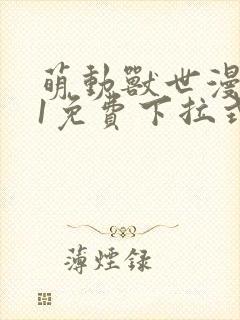 萌動獸世漫
1免費下拉式
薄煙録